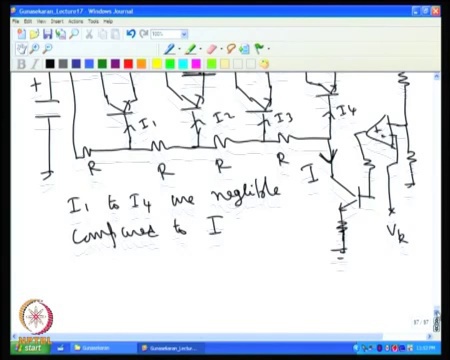 Gunasekaran_Lecture17 - Windows Journal
File Edit View Insert Actions Tools Help
100%
B I
+
I1 I2 I3 I4
R R R R
I
I1 to I4 are neglible
compared to I
VR
17 / 17
NPTEL
start Gunasekaran Gunasekaran_Lectu...